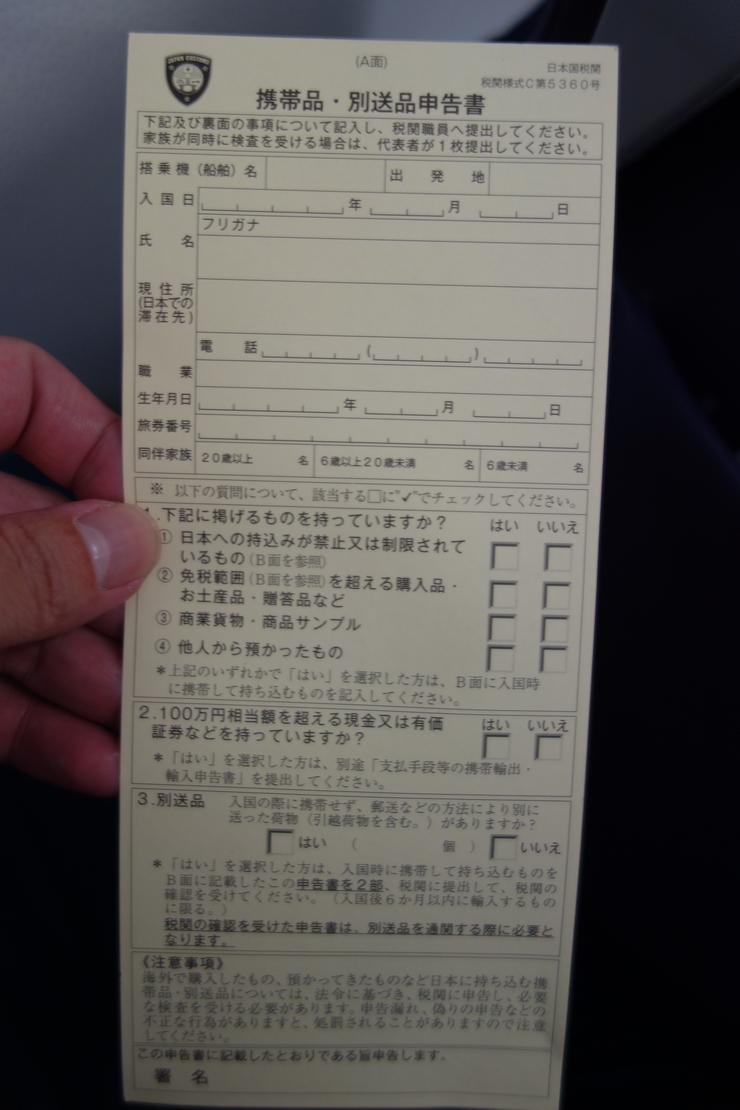 JAPAN CUSTOMS
(A面)
日本国税関
税関様式C第5360号
携帯品・別送品申告書
下記及び裏面の事項について記入し、税関職員へ提出してください。
家族が同時に検査を受ける場合は、代表者が1枚提出してください。
搭乗機(船舶)名 出発地
入国日 年 月 日
フリガナ
氏名
現住所
(日本での
滞在先)
電話 ( )
職業
生年月日 年 月 日
旅券番号
同伴家族 20歳以上 名 6歳以上20歳未満 名 6歳未満 名
※ 以下の質問について、該当する□に"✓"でチェックしてください。
1.下記に掲げるものを持っていますか? はい いいえ
① 日本への持込みが禁止又は制限されて
いるもの(B面を参照)
② 免税範囲(B面を参照)を超える購入品・
お土産品・贈答品など
③ 商業貨物・商品サンプル
④ 他人から預かったもの
*上記のいずれかで「はい」を選択した方は、B面に入国時
に携帯して持ち込むものを記入してください。
2.100万円相当額を超える現金又は有価 はい いいえ
証券などを持っていますか?
*「はい」を選択した方は、別途「支払手段等の携帯輸出・
輸入申告書」を提出してください。
3.別送品 入国の際に携帯せず、郵送などの方法により別に
送った荷物(引越荷物を含む。)がありますか?
はい ( 個 ) いいえ
*「はい」を選択した方は、入国時に携帯して持ち込むものを
B面に記載したこの申告書を2部、税関に提出して、税関の
確認を受けてください。(入国後6か月以内に輸入するもの
に限る。)
税関の確認を受けた申告書は、別送品を通関する際に必要と
なります。
《注意事項》
海外で購入したもの、預かってきたものなど日本に持ち込む携
帯品・別送品については、法令に基づき、税関に申告し、必要
な検査を受ける必要があります。申告漏れ、偽りの申告などの
不正な行為がありますと、処罰されることがありますので注意
してください。
この申告書に記載したとおりである旨申告します。
署名